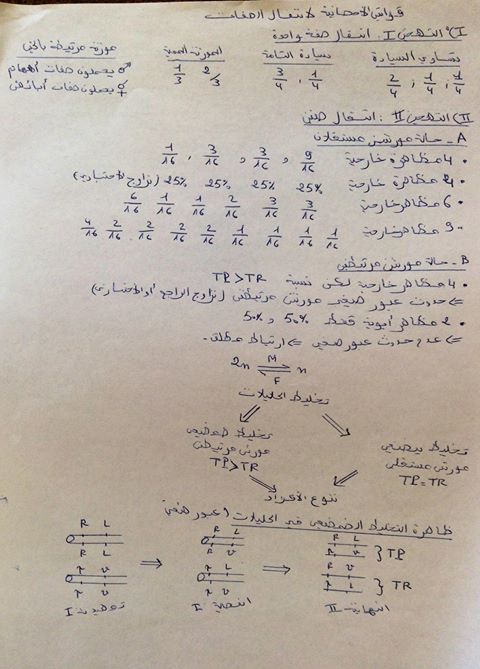 قوانين الإحصائية لانتقال الصفات
I) التهجين I. انتقال صفة واحدة
تساوي السيادة سيادة التامة المورثة المميتة مورثة مرتبطة بالجنس
2/4 ; 1/4 ; 1/4 3/4 , 1/4 2/3 1/3 ♂ يحملون صفات أمهاتهم
♀ يحملون صفات أبائهن
II) التهجين II: انتقال صفتين
A - حالة مورثتين مستقلتان
• 4 مظاهر خارجية 9/16 , 3/16 , 3/16 , 1/16
• 4 مظاهر خارجية 25% 25% 25% 25% (تزاوج الاختباري)
• 6 مظاهر خارجية 3/16 3/16 2/16 1/16 1/16 6/16
• 9 مظاهر خارجية 1/16 1/16 1/16 1/16 2/16 2/16 2/16 2/16 4/16
B - حالة مورثتين مرتبطتين
• 4 مظاهر خارجية لكن نسبة TP > TR
<= حدوث عبور صبغي مورثتين مرتبطتين (تزاوج الراجع أو الاختباري)
• 2 مظاهر أبوية فقط 50% و 50%
<= عدم حدوث عبور صبغي <= ارتباط مطلق.
2n M ⇌ F n
تخليط الحليلات
تخليط بيصبغي تخليط ضمصبغي
مورثتين مستقلتين مورثتين مرتبطتين
TP = TR TP > TR
تنوع الأفراد
ظاهرة التخليط الضمصبغي في الحليلات (عبور صبغي)
R L R L R L
R L r v } TP
r v r L
r v r v } TR
تمهيدية I انفصالية I النهائية II